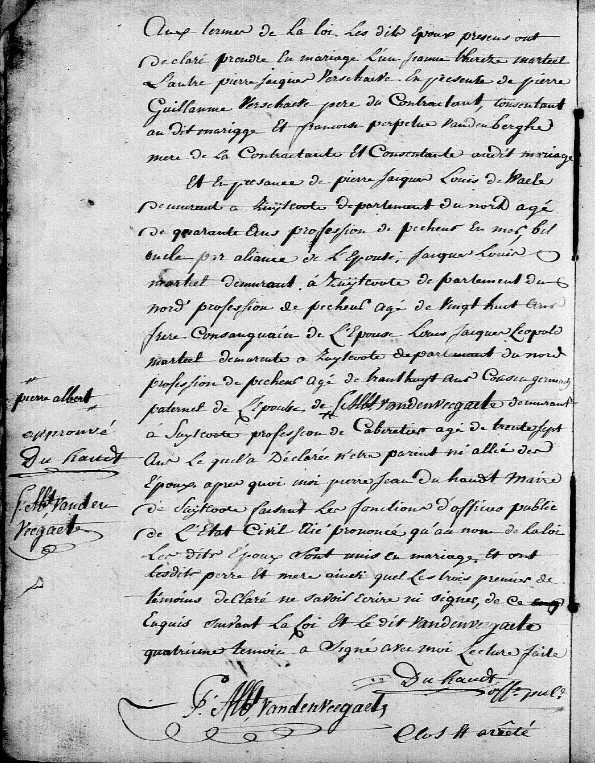 Aux termes de La loi. Les dits Epoux presens ont
declaré prendre En mariage L'un jeanne therese marteel
L'autre pierre jacques Verschaeve En presence de pierre
Guillaume Verschaeve pere du Contractant, Consentant
au dit mariage Et francoise perpetue Vandenberghe
mere de La Contractante Et Consentante audit mariage
Et En presance de pierre Jacques Louis de Waele
demeurant a Zuytcoote departement du nord agé
de quarante Ans profession de pecheur En mer, bel
oncle par aliance de L'Epouse, Jacque Louis
marteel demeurant à Zuytcoote departement du
nord profession de pecheur agé de Vingt huit Ans
frere Consanguain de L'Epouse Louis Jacques Leopold
marteel demeurente a Zuytcoote departement du nord
profession de pecheur agé de trenthuyt Ans Cousin germain
paternel de L'Epouse de P: Albt VandenVeegaete demeurant
à Suytcoote profession de Cabaretier agé de trente sept
Ans Le quel a Déclarée n'etre parent ni allié des
Epoux, apres quoi moi pierre Jean du haudt Maire
de Suytcoote faisant Les fonctions d'officier public
de L'Etat Civil Aié prononcé qu'au nom de La loi
Les dits Epoux Sont unis en mariage, et ont
Lesdits perre et mere ainsi quel Les trois premier de
témoins declaré ne savoir Ecrire ni signer, de ce
Enquis suivant La Loi et Le dit VandenVeegaete
quatrieme temoin a Signé avec moi Lecture faite
Du haudt
offr. publ.
P: Albt VandenVeegaete
Clos et arrêté
pierre albert
approuvé
Du haudt
P: Albt Vanden
Veegaete